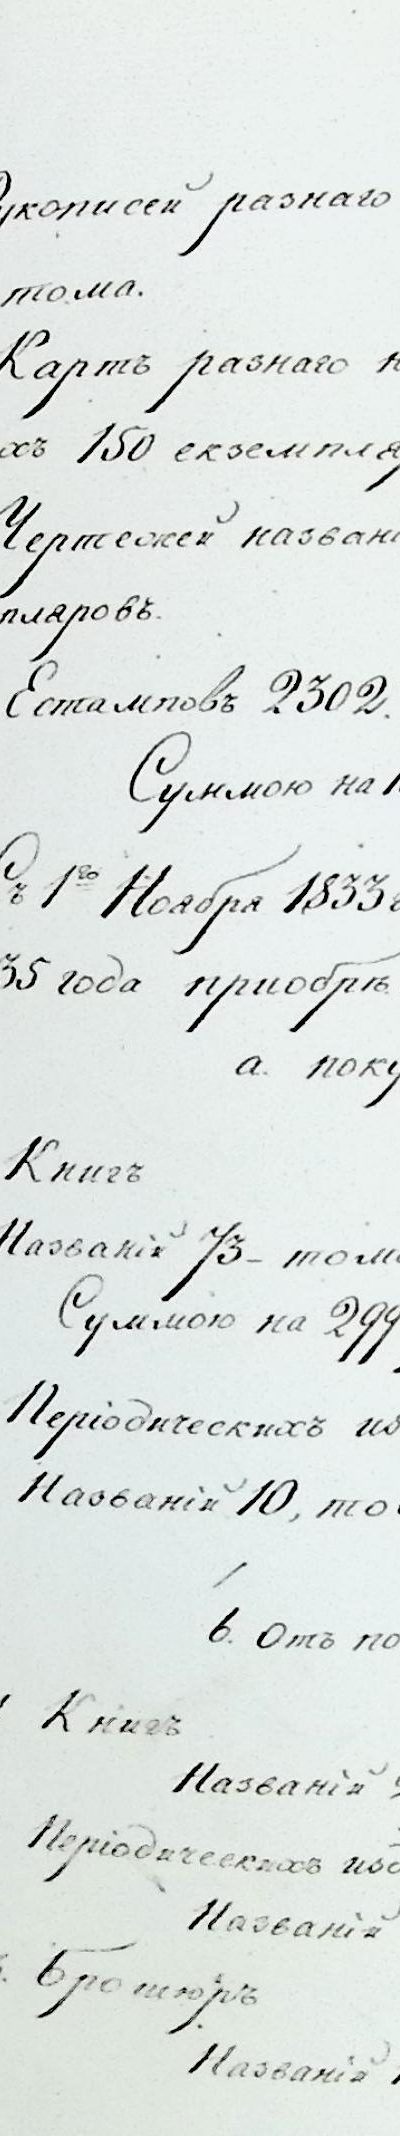 Рукописей разнаго
тома.
Картъ разнаго н
хъ 150 екземпля
Чертежей названі
пляровъ.
Естамповъ 2302.
Суммою на
Съ 1го Ноября 1833
35 года приобрѣ
а. поку
Книгъ
Названій 73 - томо
Суммою на 299
Періодическихъ из
Названій 10, то
b. Отъ по
Книгъ
Названій
Періодическихъ изд
Названій
Брошюръ
Названій